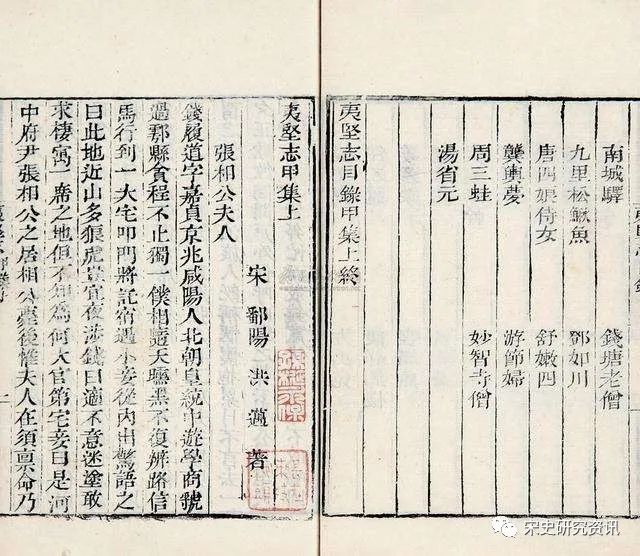 南城驛　錢塘老僧
九里松鰍魚　鄧如川
唐四娘侍女　舒嫩四
龔輿夢　游節婦
周三蛙　妙智寺僧
湯省元
夷堅志目錄甲集上終
夷堅志甲集上
宋　鄱陽　洪邁　著
張相公夫人
錢履道字嘉貞京兆咸陽人北朝皇統中遊學商虢
過鄠縣貪程不止獨一僕相隨天曛黑不復辨路信
馬行到一大宅叩門將託宿遇小妾從內出驚語之
曰此地近山多狼虎豈宜夜涉錢曰適不意迷途敢
求棲寓一席之地但不知為何大官第宅妾曰是河
中府尹張相公之居相公薨後惟夫人在須稟命乃
宋史研究资讯